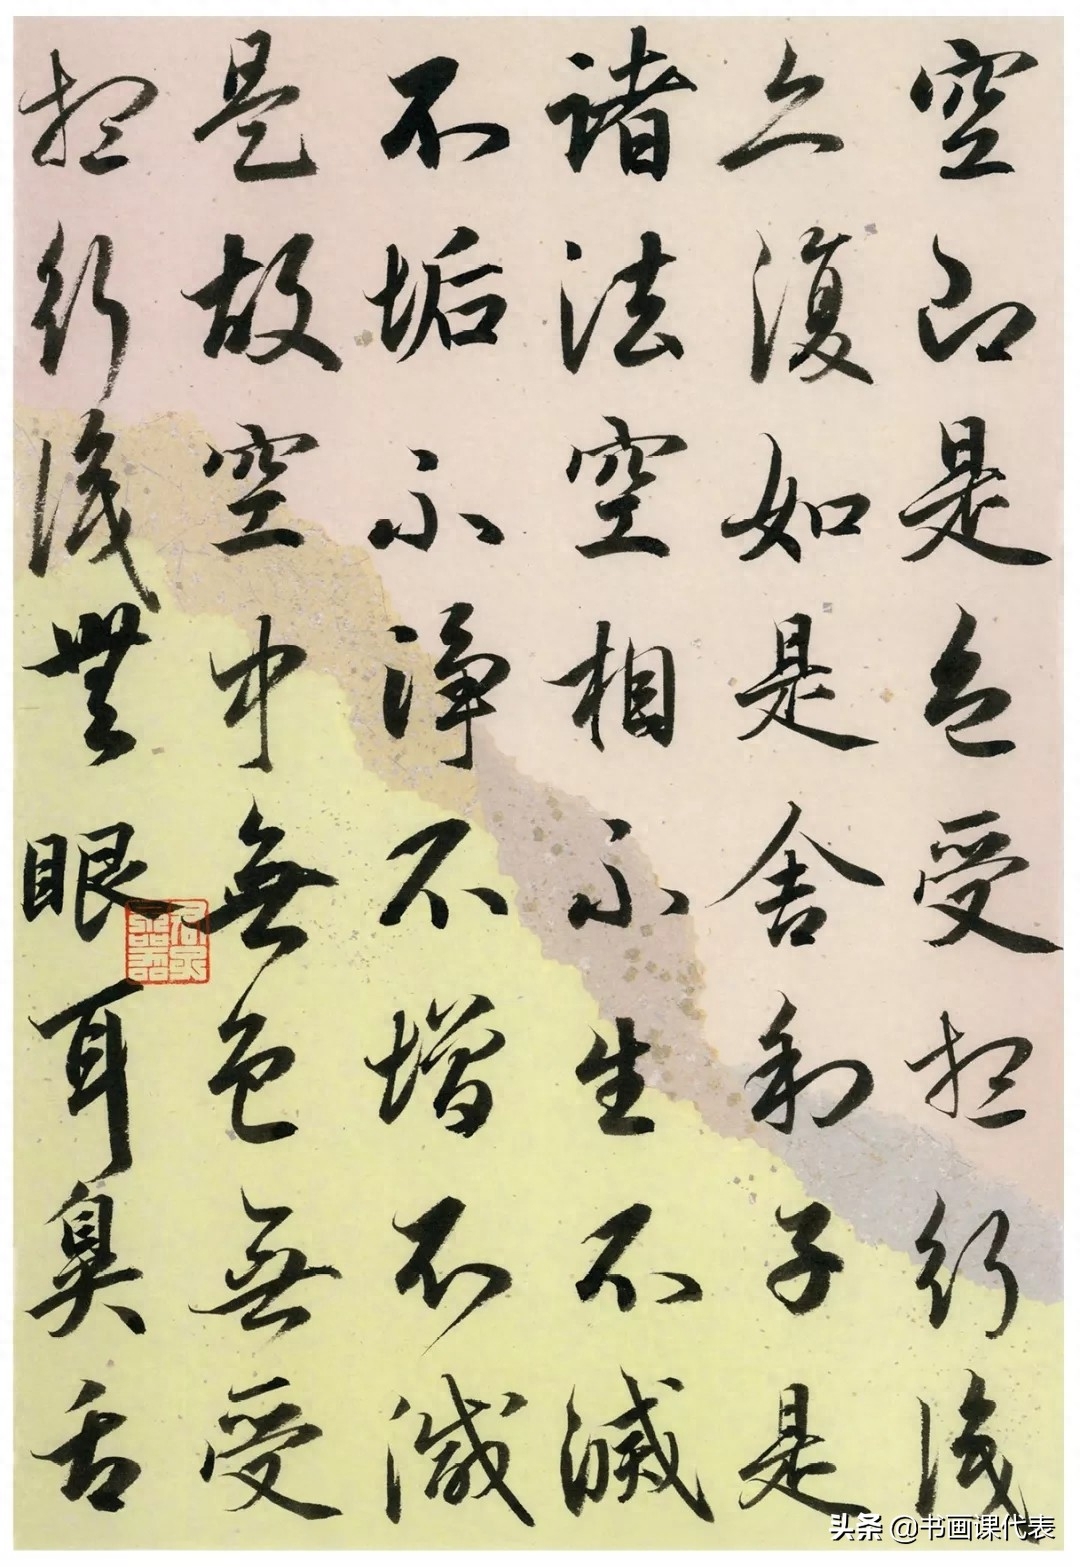 空即是色受想行識
亦復如是舍利子是
諸法空相不生不滅
不垢不淨不增不減
是故空中無色無受
想行識無眼耳鼻舌
头条 @书画课代表